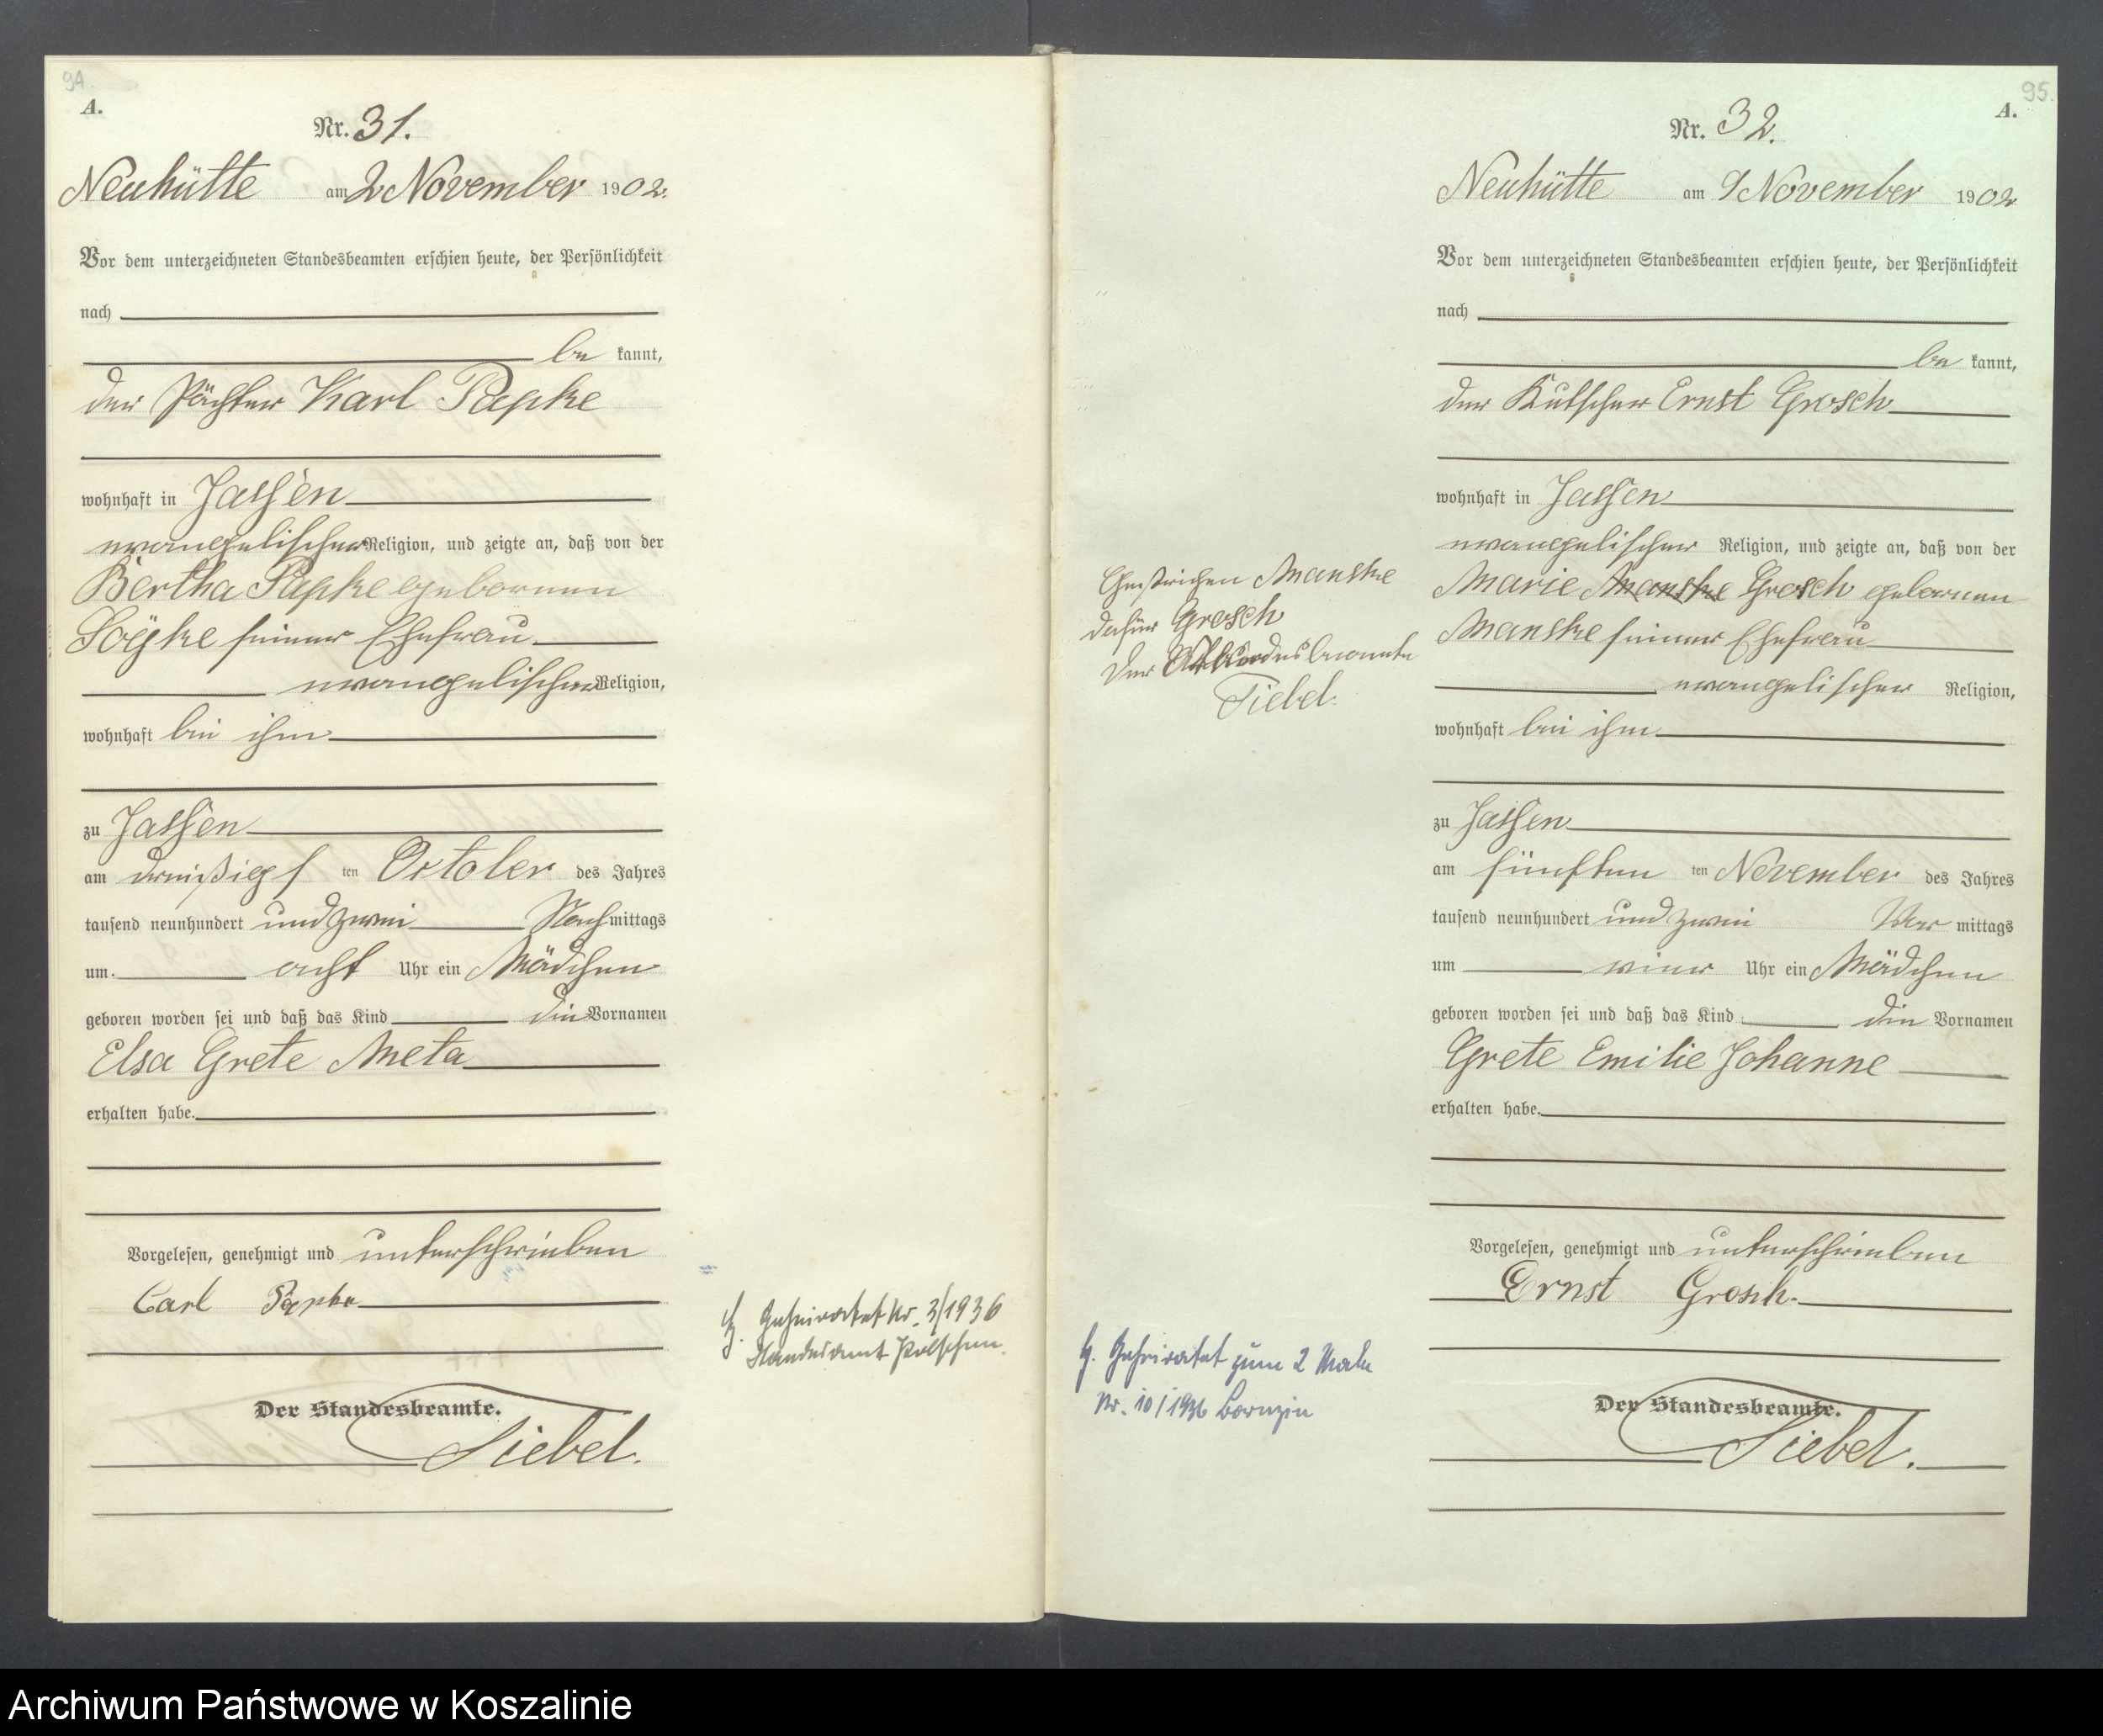 94.
A.
Nr. 31.
Neuhütte am 2 November 1902.
Vor dem unterzeichneten Standesbeamten erschien heute, der Persönlichkeit
nach
be kannt,
der Pächter Karl Papke
wohnhaft in Jassen
evangelischer Religion, und zeigte an, daß von der
Bertha Papke geborenen
Söyke seiner Ehefrau
evangelischer Religion,
wohnhaft bei ihm
zu Jassen
am dreißigst ten October des Jahres
tausend neunhundert und zwei Nach mittags
um acht Uhr ein Mädchen
geboren worden sei und daß das Kind die Vornamen
Elsa Grete Meta
erhalten habe.
Vorgelesen, genehmigt und unterschrieben
Carl Papke
Der Standesbeamte.
Siebel.
H. Geheiratet Nr. 3/1936
Standesamt
95.
A.
Nr. 32.
Neuhütte am 9 November 1902
Vor dem unterzeichneten Standesbeamten erschien heute, der Persönlichkeit
nach
be kannt,
der Kutscher Ernst Grosch
wohnhaft in Jassen
evangelischer Religion, und zeigte an, daß von der
Marie Manske Grosch geborenen
Manske seiner Ehefrau
evangelischer Religion,
wohnhaft bei ihm
zu Jassen
am fünften ten November des Jahres
tausend neunhundert und zwei Vor mittags
um einer Uhr ein Mädchen
geboren worden sei und daß das Kind die Vornamen
Grete Emilie Johanne
erhalten habe.
Vorgelesen, genehmigt und unterschrieben
Ernst Grosch.
Der Standesbeamte.
Siebel.
Gestrichen Manske
dafür Grosch
Der Standesbeamte
Siebel.
H. Geheiratet zum 2 Male
Nr. 10/1936 Bornzin
Archiwum Państwowe w Koszalinie